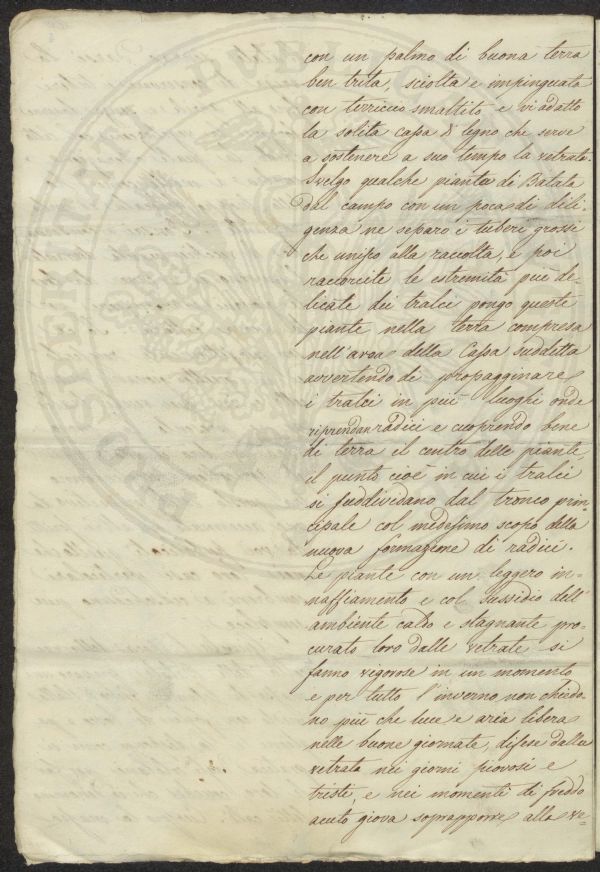 con un palmo di buona terra
ben trita, sciolta e impinguata
con terriccio smaltito e vi adatto
la solita cassa di legno che serve
a sostenere a suo tempo la vetrata.
Svelgo qualche pianta di Batata
dal campo con un poca di dili-
genza ne separo i tuberi grossi
che unisco alla raccolta, e poi
raccorcite le estremità più de-
licate dei tralci pongo queste
piante nella terra compresa
nell'area della Cassa suddetta
avvertendo di propagginare
i tralci in più luoghi onde
riprendan radici e cuoprendo bene
di terra il centro delle piante,
il punto cioè in cui i tralci
si suddividano dal tronco prin-
cipale col medesimo scopo della
nuova formazione di radici.
Le piante con un leggero in-
naffiamento e col sussidio dell'
ambiente caldo e stagnante pro-
curato loro dalle vetrate si
fanno vigorose in un momento
e per tutto l'inverno non chiedo-
no più che luce e aria libera
nelle buone giornate, difese dalla
vetrata nei giorni piovosi e
tristi, e nei momenti di freddo
acuto giova soprapporre alla ve-